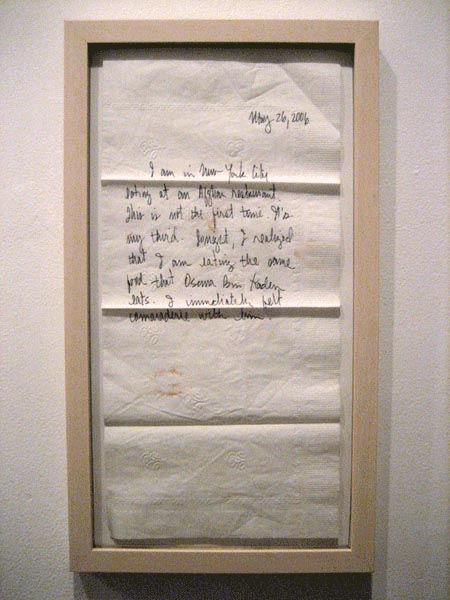 May 26, 2006
I am in New York City
eating at an Afghan restaurant.
This is not the first time. It's
my third. I realized
that I am eating the same
food that Osama Bin Laden
eats. I immediately felt
camaraderie with him.